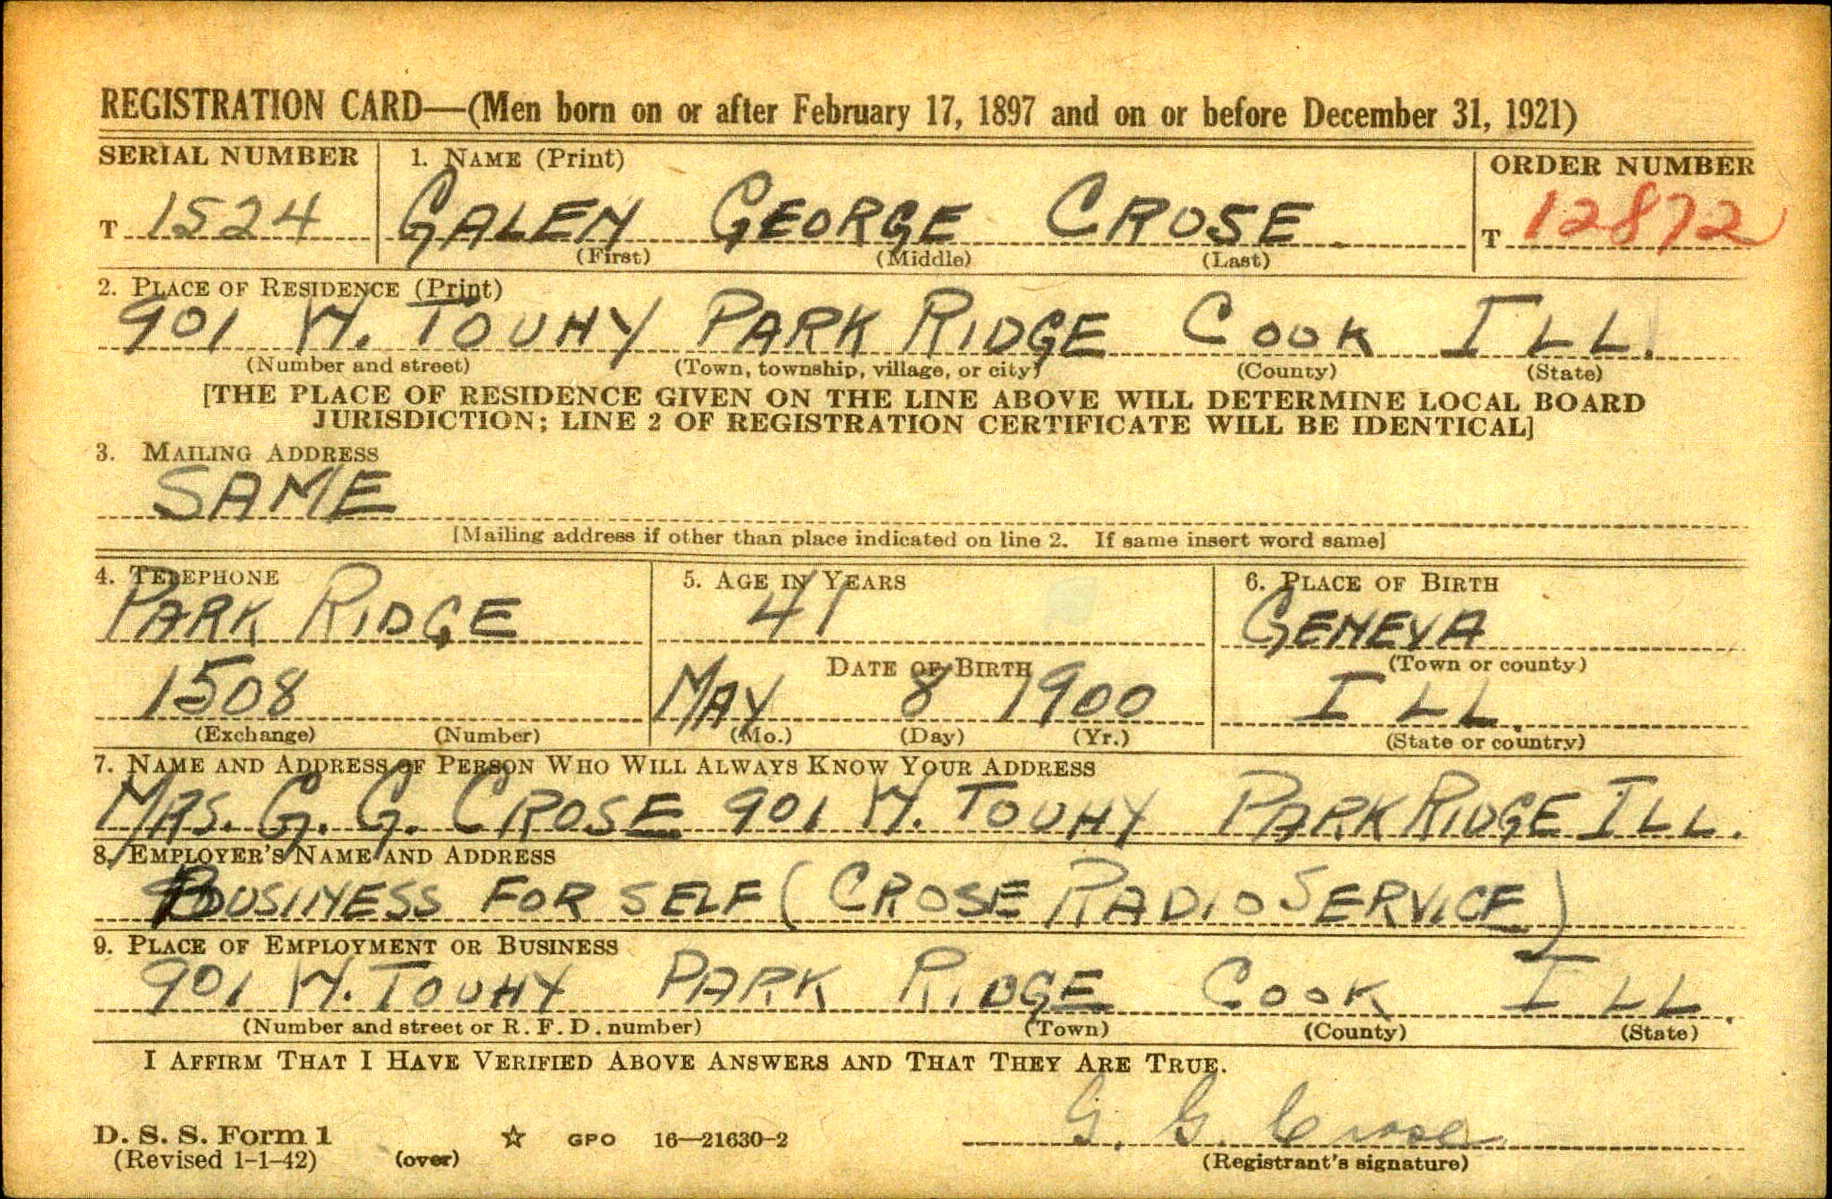 REGISTRATION CARD—(Men born on or after February 17, 1897 and on or before December 31, 1921)
SERIAL NUMBER 1. NAME (Print) ORDER NUMBER
T 1524 GALEN GEORGE CROSE T 12872
(First) (Middle) (Last)
2. PLACE OF RESIDENCE (Print)
901 W. TOUHY PARK RIDGE COOK ILL.
(Number and street) (Town, township, village, or city) (County) (State)
[THE PLACE OF RESIDENCE GIVEN ON THE LINE ABOVE WILL DETERMINE LOCAL BOARD
JURISDICTION; LINE 2 OF REGISTRATION CERTIFICATE WILL BE IDENTICAL]
3. MAILING ADDRESS
SAME
[Mailing address if other than place indicated on line 2. If same insert word same]
4. TELEPHONE 5. AGE IN YEARS 6. PLACE OF BIRTH
PARK RIDGE 41 GENEVA
DATE OF BIRTH (Town or county)
1508 MAY 8 1900 ILL.
(Exchange) (Number) (Mo.) (Day) (Yr.) (State or country)
7. NAME AND ADDRESS OF PERSON WHO WILL ALWAYS KNOW YOUR ADDRESS
MRS. G. G. CROSE 901 W. TOUHY PARK RIDGE ILL.
8. EMPLOYER'S NAME AND ADDRESS
BUSINESS FOR SELF (CROSE RADIO SERVICE)
9. PLACE OF EMPLOYMENT OR BUSINESS
901 W. TOUHY PARK RIDGE COOK ILL.
(Number and street or R. F. D. number) (Town) (County) (State)
I AFFIRM THAT I HAVE VERIFIED ABOVE ANSWERS AND THAT THEY ARE TRUE.
G. G. Crose
D. S. S. Form 1 ☆ GPO 16—21630-2
(Revised 1-1-42) (over) (Registrant's signature)